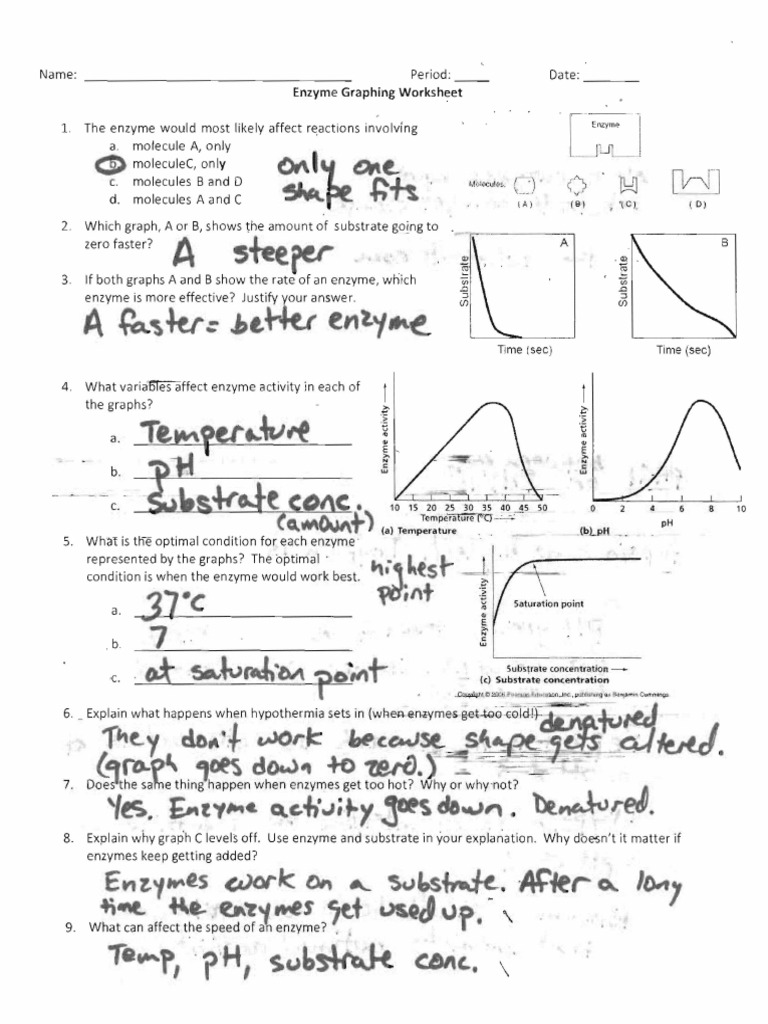 Name: ______ Period: ____ Date: ____
Enzyme Graphing Worksheet
1. The enzyme would most likely affect reactions involving
a. molecule A, only
b. moleculeC, only
c. molecules B and D
d. molecules A and C
only one
shape fits
Enzyme
Molecules:
(A) (B) (C) (D)
2. Which graph, A or B, shows the amount of substrate going to
zero faster?
A steeper
3. If both graphs A and B show the rate of an enzyme, which
enzyme is more effective? Justify your answer.
A faster = better enzyme
A
Substrate
Time (sec)
B
Substrate
Time (sec)
4. What variables affect enzyme activity in each of
the graphs?
a. Temperature
b. pH
c. Substrate conc.
(amount)
Enzyme activity
10 15 20 25 30 35 40 45 50
Temperature (°C)
(a) Temperature
Enzyme activity
0 2 4 6 8 10
pH
(b) pH
5. What is the optimal condition for each enzyme
represented by the graphs? The optimal
condition is when the enzyme would work best.
highest
point
a. 37°C
b. 7
c. at saturation point
Enzyme activity
Saturation point
Substrate concentration
(c) Substrate concentration
Copyright © 2006 Pearson Education, Inc., publishing as Benjamin Cummings
6. Explain what happens when hypothermia sets in (when enzymes get too cold!)
denatured
They don't work because shape gets altered.
(graph goes down to zero.)
7. Does the same thing happen when enzymes get too hot? Why or why not?
Yes. Enzyme activity goes down. Denatured.
8. Explain why graph C levels off. Use enzyme and substrate in your explanation. Why doesn't it matter if
enzymes keep getting added?
Enzymes work on a substrate. After a long
time the enzymes get used up.
9. What can affect the speed of an enzyme?
Temp, pH, substrate conc.